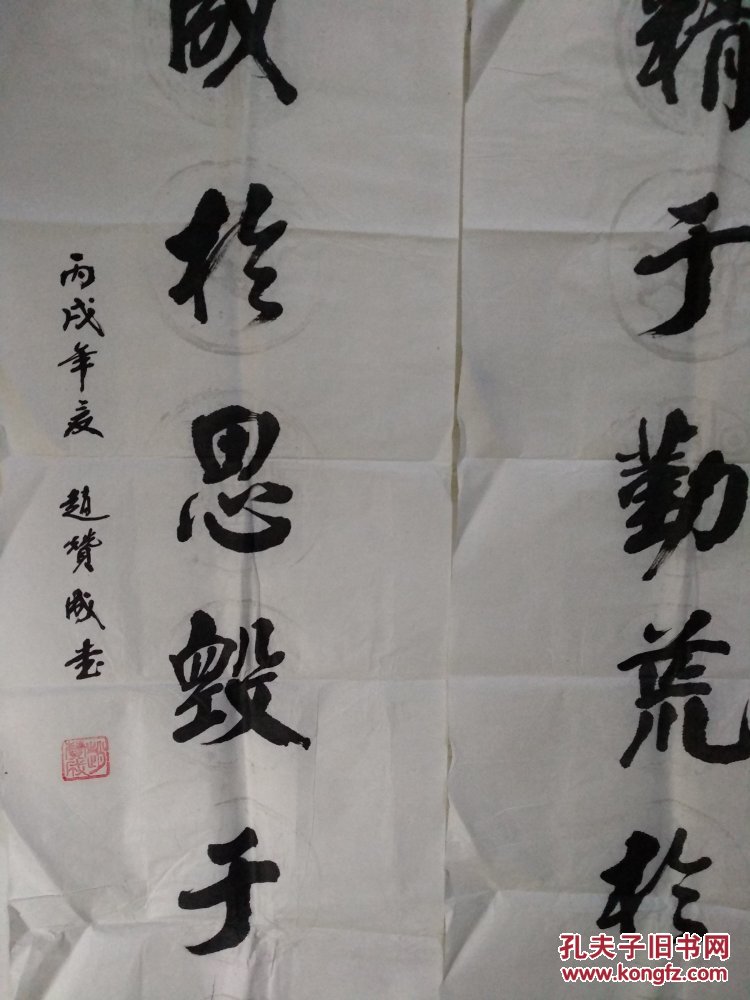 精于勤荒於
成於思毁于
丙戌年夏 趙贊成書
孔夫子旧书网
www.kongfz.com